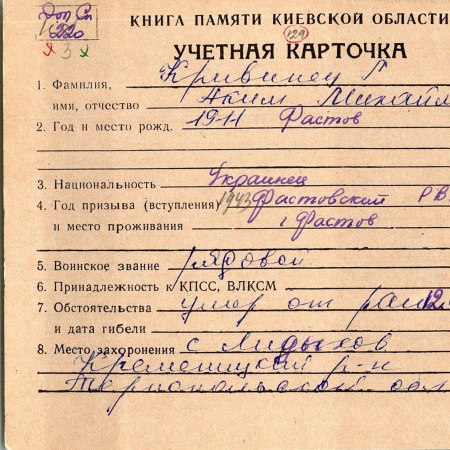 Доп Сп
220
3
КНИГА ПАМЯТИ КИЕВСКОЙ ОБЛАСТИ
129
УЧЕТНАЯ КАРТОЧКА
1. Фамилия, Кривинец
имя, отчество Аким Михайл
2. Год и место рожд. 1911 Фастов
3. Национальность Украинец
4. Год призыва (вступления) 1943 Фастовский РВ
и место проживания г Фастов
5. Воинское звание рядовой
6. Принадлежность к КПСС, ВЛКСМ
7. Обстоятельства умер от ран 12
и дата гибели
8. Место захоронения с Лидыхов
Кременицкий р-н
Тернопольской обл